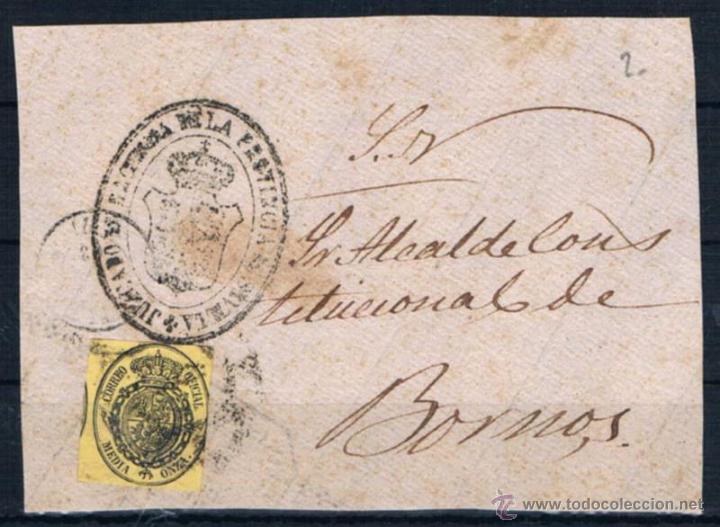 2.
S. N
Sr Alcalde Cons
titucional de
Bornos,
JUZGADO DE HACIENDA DE LA PROVINCIA DE
CORREO OFICIAL
MEDIA ONZA.
© www.todocoleccion.net